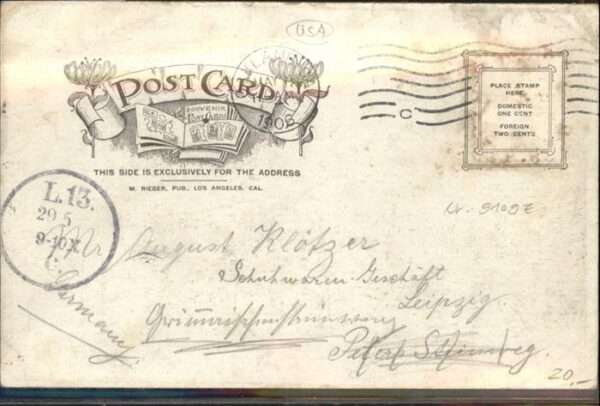 USA
POST CARD
1908
SOUVENIR
Post Cards
C
PLACE STAMP
HERE
DOMESTIC
ONE CENT
FOREIGN
TWO CENTS
THIS SIDE IS EXCLUSIVELY FOR THE ADDRESS
M. RIEDER, PUB., LOS ANGELES, CAL.
L.13.
29.5
9-10
Mr August Klötzer
Schuhwaren-Geschäft
Leipzig.
Germany
20,-